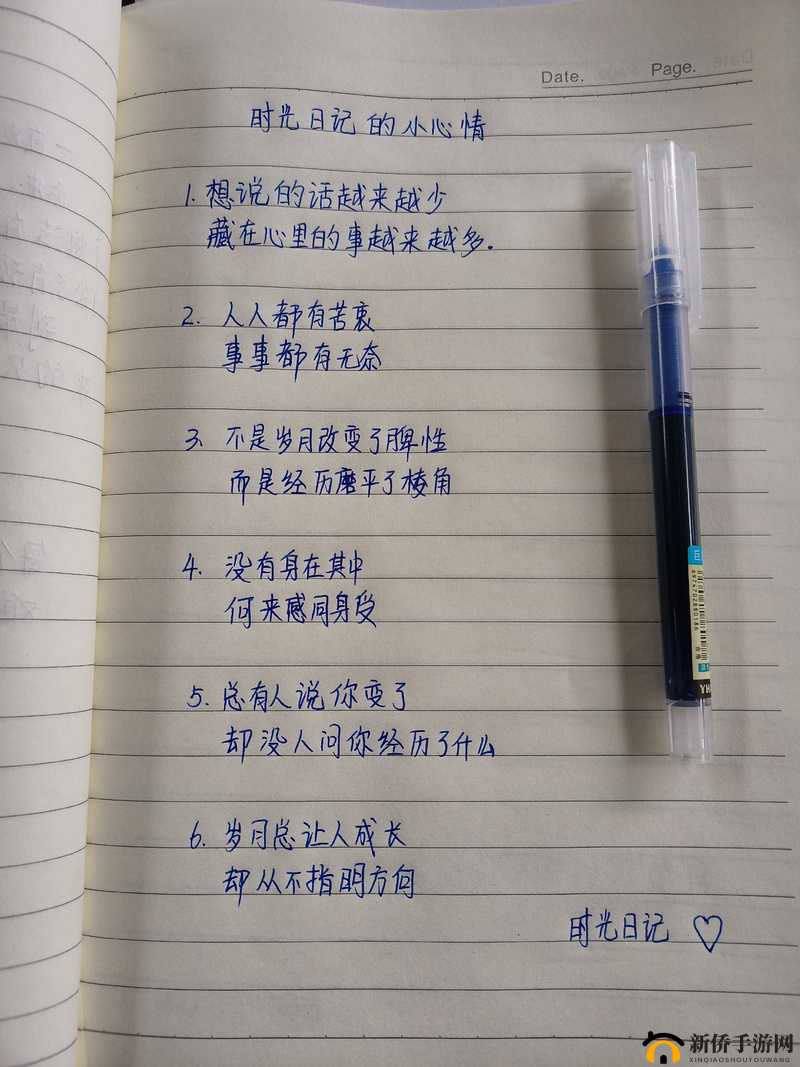 Date.
Page.
时光日记的小心情
1. 想说的话越来越少
藏在心里的事越来越多.
2. 人人都有苦衷
事事都有无奈
3. 不是岁月改变了脾性
而是经历磨平了棱角
4. 没有身在其中
何来感同身受
5. 总有人说你变了
却没人问你经历了什么
6. 岁月总让人成长
却从不指明方向
时光日记 ♡
新侨手游网
XINQIAOSHOUYOUWANG